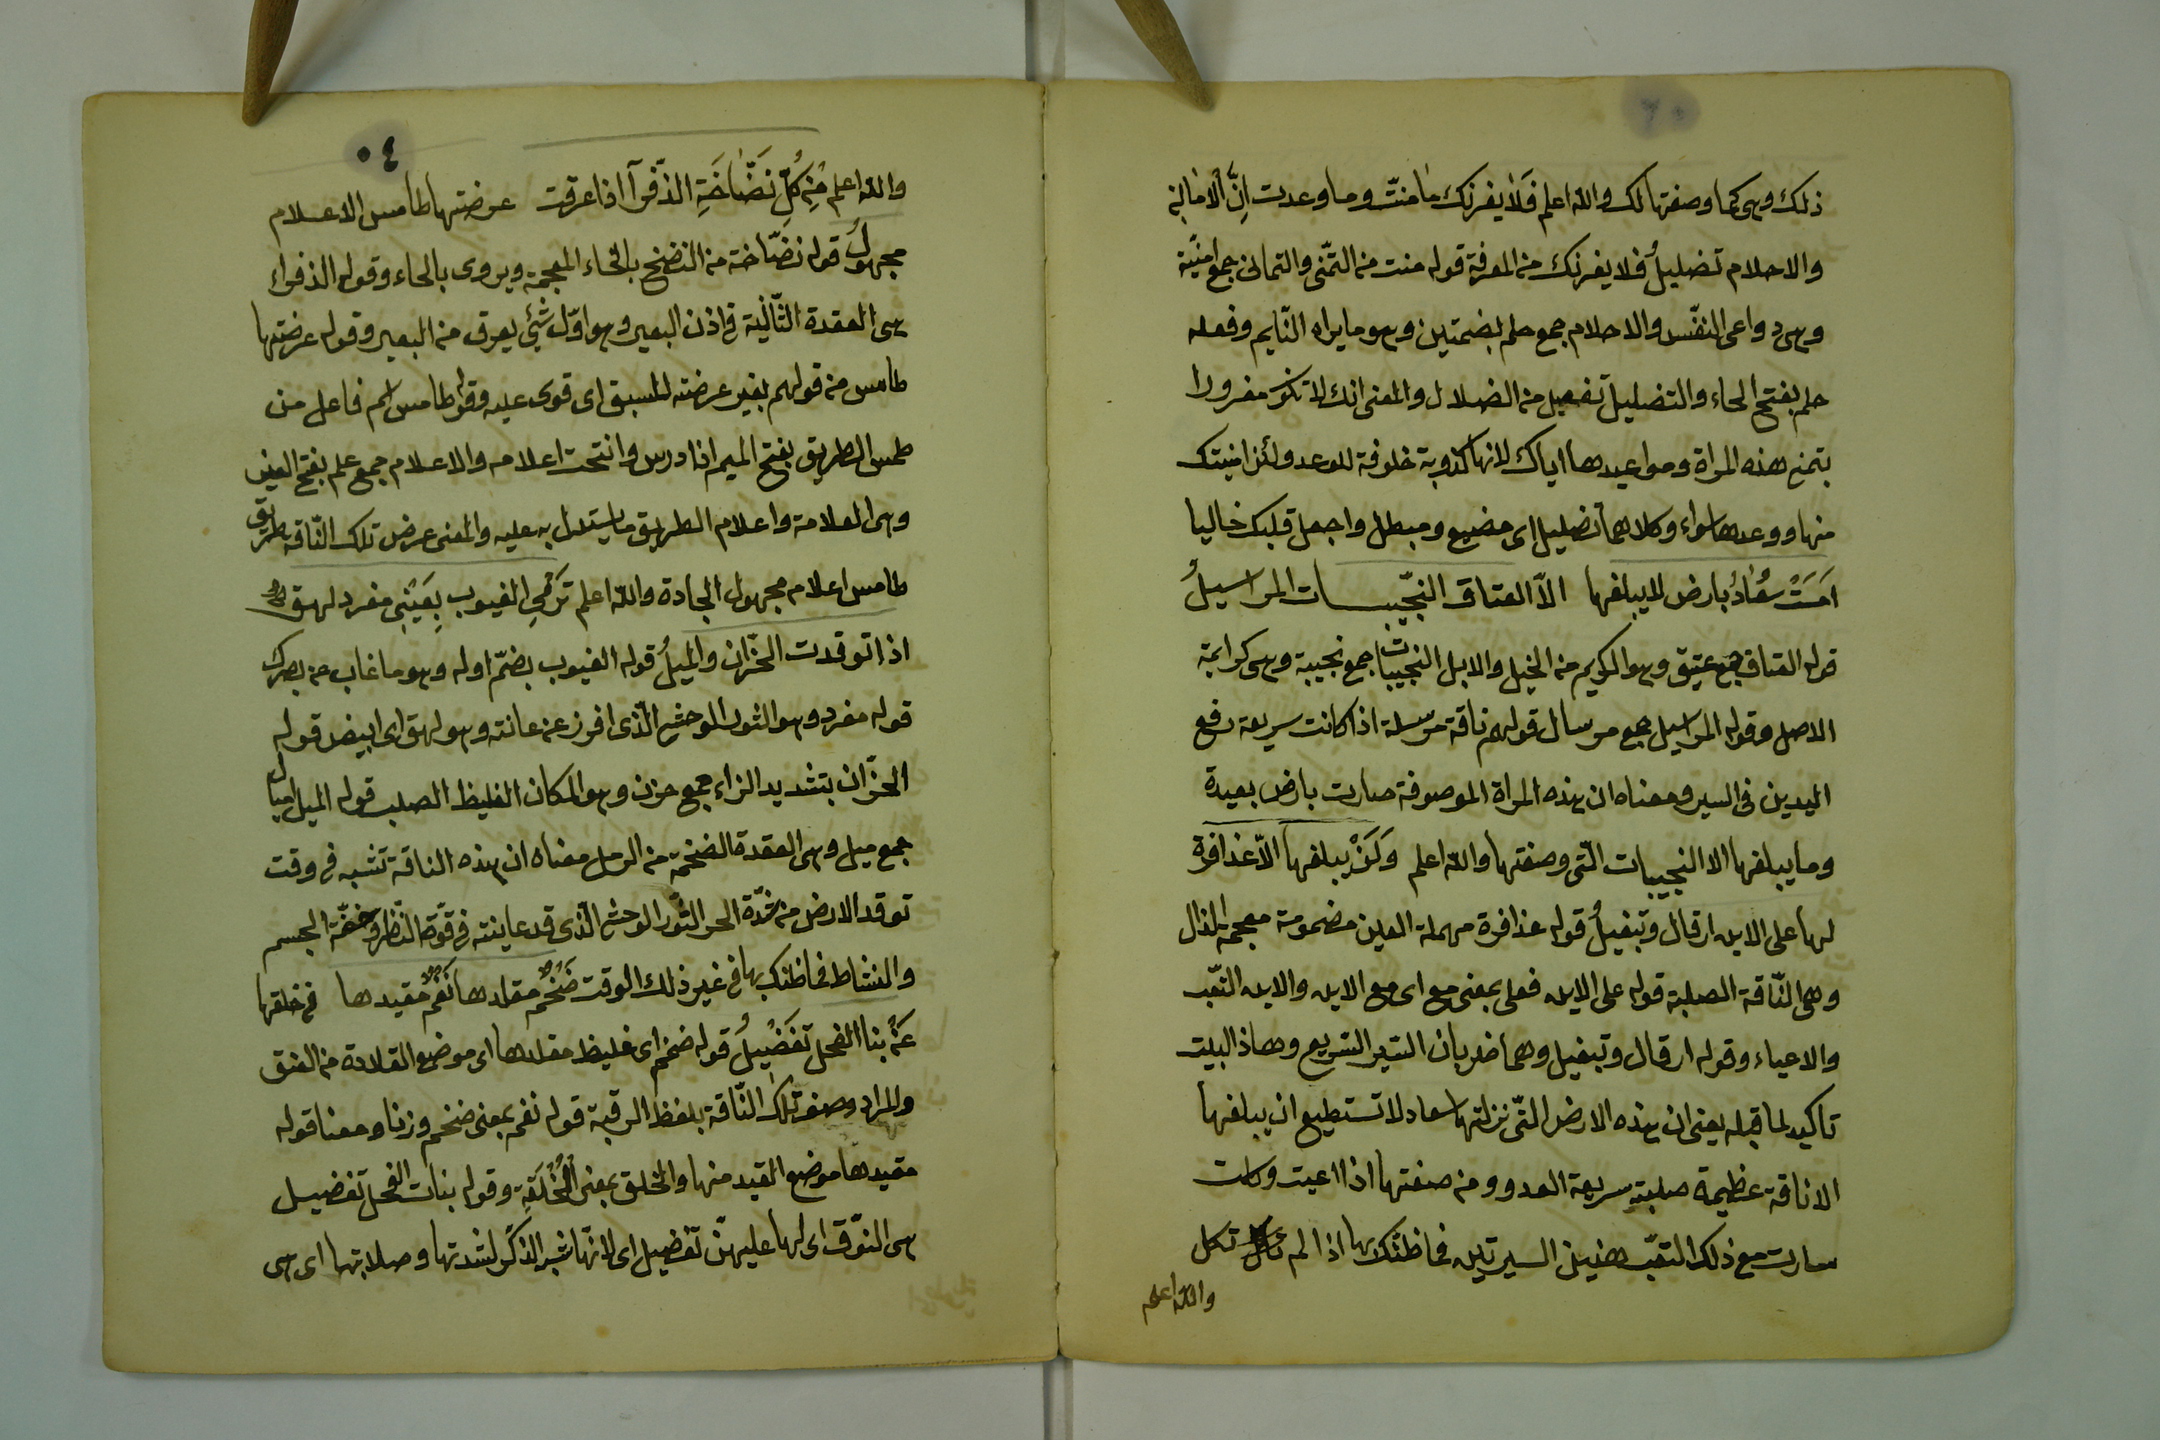 ذلك وهي كما وصفتها لك والله اعلم فَلاٰ يغرنك مٰا منتّ وما وعدت اِنَّ الاٰمٰانِيَ
والاحلام تضليلُ فلا يغرنك من المعرفة قوله منت من التمّنى والتمانى جمع امنيّة
وهى دواعى النفّس والاحلام جمع حلم بضمتين وهو ما يراه النّايم وفعله
حلم بفتح الحاء والتضليل تفعيل من الضلال والمعنى انك لا تكون مغرورا
بتمنى هذه المراة ومواعيدها اياك لانها كذوبة خلوفة للوعد ولئن امنيتك
منها ووعدها سواء وكلاهما تضليل اى مضيع ومبطل واجعل قلبك خاليا
اَمسَتْ سُعٰادُ بارض لا يبلغها الاّ العتاق النجّيبات المراسيلُ
قوله العتاق جمع عتيق وهو الكريم من الخيل والابل النجيبات جمع نجيبة وهى كرايمة
الاصل وقوله المراسيل جمع مرسال قولهم ناقة مرسلة اذا كانت سريعة رفع
اليدين فى السير ومعناه ان هذه المراة الموصوفة صارت بارض بعيدة
وما يبلغها الا النجيبات التّى وصفتها والله اعلم وَلَنْ يبلغها الاّ عذافرة
لها على الاين ارقال وتبغيلُ قوله عذافرة مهملة العين مضمومة معجمة الذال
وهى النّاقة الصلبة قوله على الاين فعلى بمعنى مع اى مع الاين والاين التّعب
والاعياء وقوله ارقال وتبغيل وهما ضربان السّير السّريع وهاذا البيت
تاكيد لما قبله يعنى ان هذه الارض التّى نزلتها سعاد لا تستطيع ان يبلغها
الا ناقة عظيمة صلبة سريعة العدو ومن صفتها اذا اعيت وكلت
سارت مع ذلك التعّب هذين السيرتين فما ظنّك بها اذا لم تكل
والله اعلم
٥٤
والله اعلم مِنْ كُلِّ نَضّٰاخَةِ الذفّرآ اذا عرقت عرضتها طامس الاعلام
مجهولُ قوله نضّاخة من النضخ بالخاء المعجمة ويروى بالحاء وقوله الذفراء
هى العقدة الثّانية فى اذن البعير وهو اوّل شئ يعرق من البعير وقوله عرضتها
طامس من قولهم بعير عرضته للسبق اى قوى عليه وقوله طامس اسم فاعل من
طمس الطريق بفتح الميم اذا درس وانتحت اعلامه والاعلام جمع علم بفتح العين
وهى العلامة واعلام الطريق ما يستدل به عليه والمعنى عرض تلك النّاقه طريق
طامس اعلام مجهول الجادة والله اعلم تَرْمِي الغيوب بِعَيْنَي مفرد لهق
اذا توقدت الحزّان والميلُ قوله الغيوب بضمّ اوله وهو ما غاب عن بصرك
قوله مفرد وهو الثور الوحشى الّذى افرز عن عانته وهو لهق اى ابيض قوله
الحزّان بتشديد الزاء جمع حزن وهو المكان الغليظ الصلب قوله الميل اميال
جمع ميل وهى العقدة الضخمة من الرمل معناه ان هذه الناقة تشبه فى وقت
توقد الارض من شدّة الحر الثّور الوحشى الّذى قد عاينته فى قوّة النّظر وخفّة الجسم
والنشاط فما ظنك بها فى غير ذلك الوقت ضَخْمٌ مقلدها فَعْمٌ مقيدها فى خلقها
عَنْ بنات الفحل تَفَضْيلُ قوله ضخم اى غليظ مقلدها اى موضع القلادة من العنق
والمراد وصف تلك النّاقة بلغظ الرقبة قوله نعم بمعنى ضخم وزنا ومعنا قوله
مقيدها موضع القيد منها والخلق بمعنى الْخُلْقَةِ وقوله بنات الفحل تفضيل
هى النّوق اى لها عليهنّ تفضيل اى لانّها شبه الذكر لشدتها وصلابتها اى هى